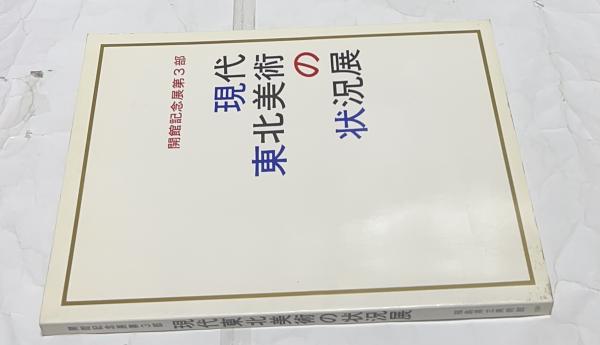 開館記念展第3部
現代
東北美術の
状況展
開館記念展第3部 現代東北美術の状況展 福島県立美術館